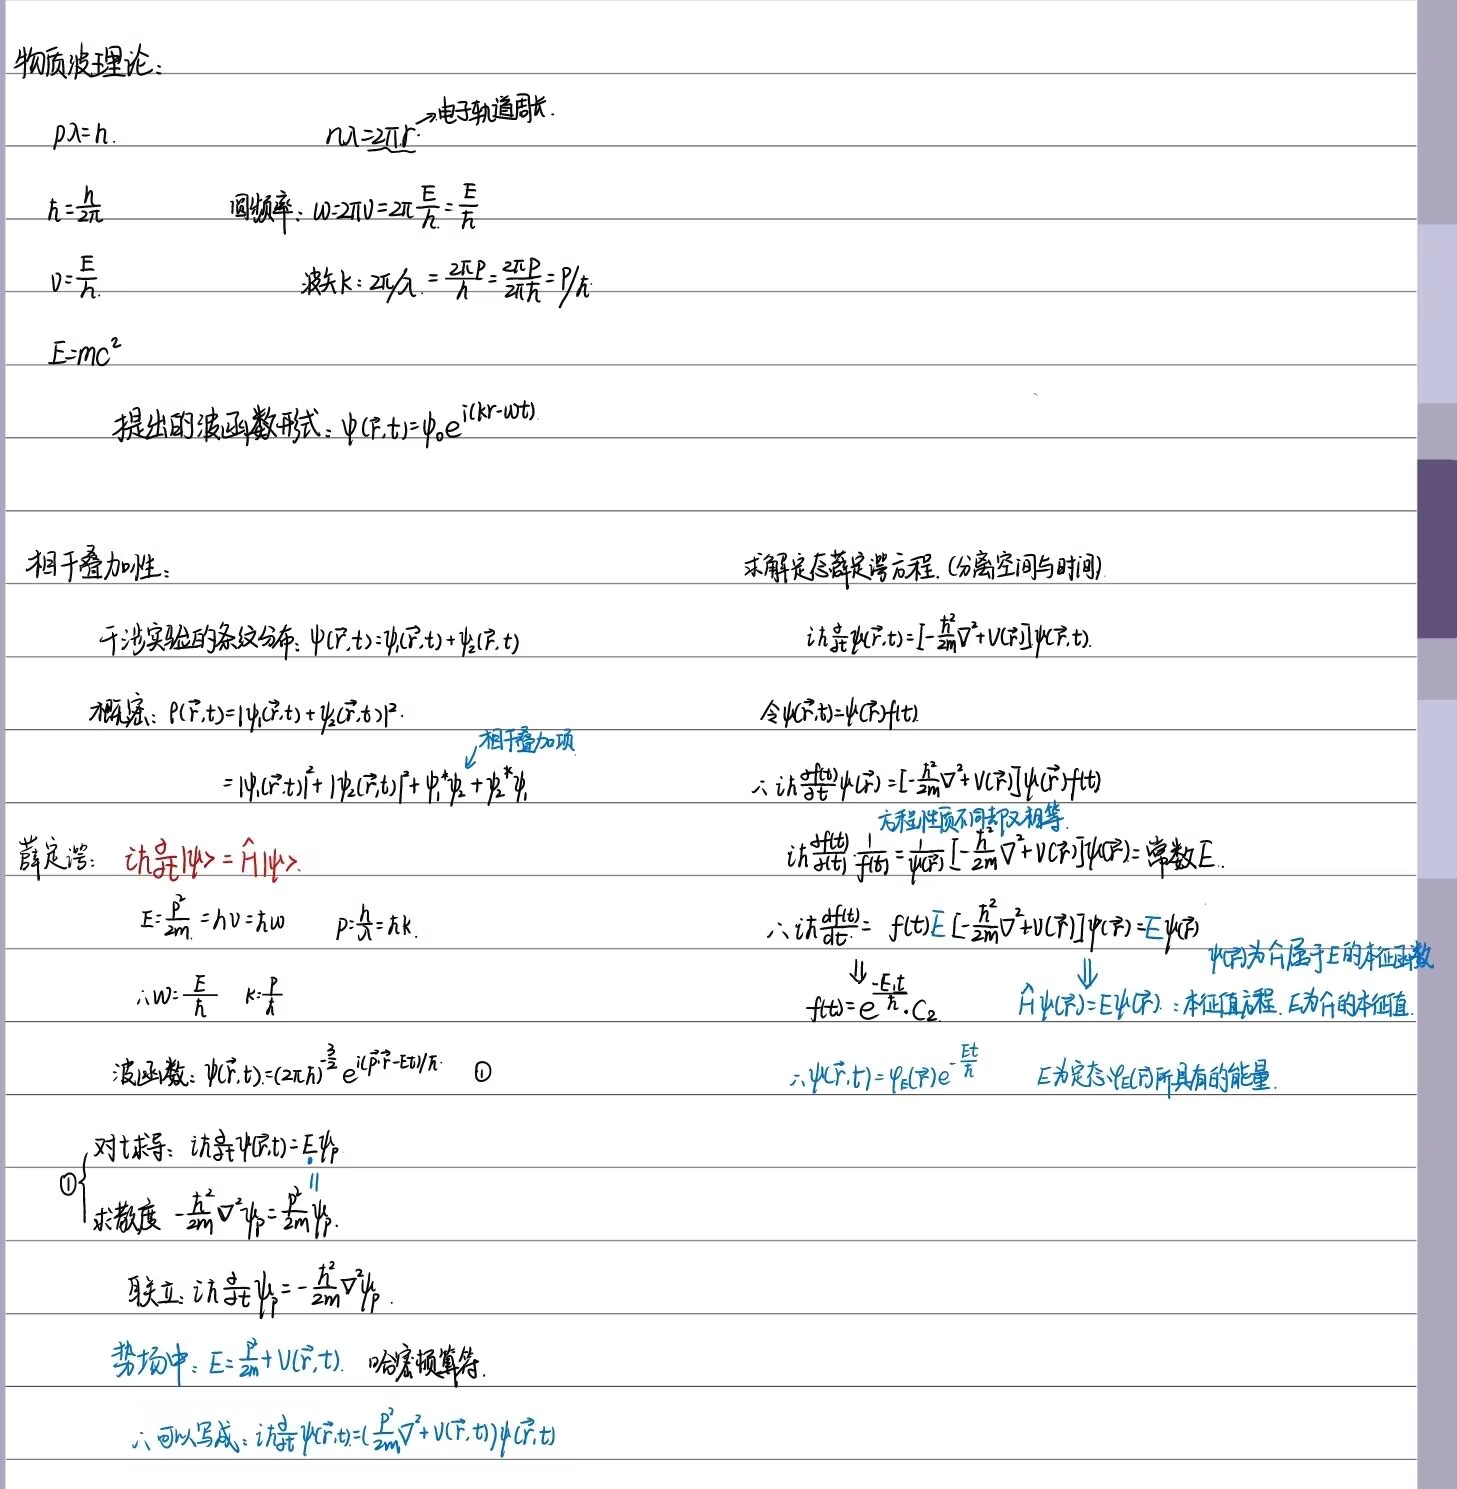 物质波理论:
pλ=h.
nλ=2πr → 电子轨道周长.
ħ=h/2π
圆频率: ω=2πν=2π E/h=E/ħ
ν=E/h.
波矢k: 2π/λ = 2πp/h = 2πp/2πħ = p/ħ.
E=mc²
提出的波函数形式: ψ(r⃗,t)=ψ₀e^{i(kr-ωt)}
相干叠加性:
干涉实验的条纹分布: ψ(r⃗,t)=ψ₁(r⃗,t)+ψ₂(r⃗,t)
概密: ρ(r⃗,t)=|ψ₁(r⃗,t)+ψ₂(r⃗,t)|².
相干叠加项
=|ψ₁(r⃗,t)|²+|ψ₂(r⃗,t)|²+ψ₁*ψ₂+ψ₂*ψ₁
薛定谔: iħ ∂/∂t|ψ> = Ĥ|ψ>.
E=p²/2m.=hν=ħω p=h/λ=ħk.
∴ω=E/ħ k=p/ħ
波函数: ψ(r⃗,t)=(2πħ)^{-3/2} e^{i(p⃗·r⃗-Et)/ħ}. ①
① 对t求导: iħ ∂/∂t ψ(r⃗,t)=Eψp
=
求散度 -ħ²/2m ∇²ψp=p²/2m ψp.
联立: iħ ∂/∂t ψp=-ħ²/2m ∇²ψp.
势场中: E=p²/2m+V(r⃗,t). 哈密顿算符.
∴可以写成: iħ ∂/∂t ψ(r⃗,t)=(p²/2m ∇²+V(r⃗,t))ψ(r⃗,t)
求解定态薛定谔方程.(分离空间与时间)
iħ ∂/∂t ψ(r⃗,t)=[-ħ²/2m ∇²+V(r⃗)]ψ(r⃗,t).
令ψ(r⃗,t)=ψ(r⃗)f(t).
∴iħ ∂f(t)/∂t ψ(r⃗)=[-ħ²/2m ∇²+V(r⃗)]ψ(r⃗)f(t)
方程性质不同却又相等.
iħ df(t)/d(t)·1/f(t)=1/ψ(r⃗)[-ħ²/2m ∇²+V(r⃗)]ψ(r⃗)=常数E.
∴iħ df(t)/dt= f(t)E [-ħ²/2m ∇²+V(r⃗)]ψ(r⃗)=Eψ(r⃗)
ψ(r⃗)为Ĥ属于E的本征函数
⇓ ⇓
f(t)=e^{-Eit/ħ}·C₂ Ĥψ(r⃗)=Eψ(r⃗).:本征值方程. E为Ĥ的本征值.
∴ψ(r⃗,t)=φE(r⃗)e^{-Et/ħ} E为定态φE(r⃗)所具有的能量.